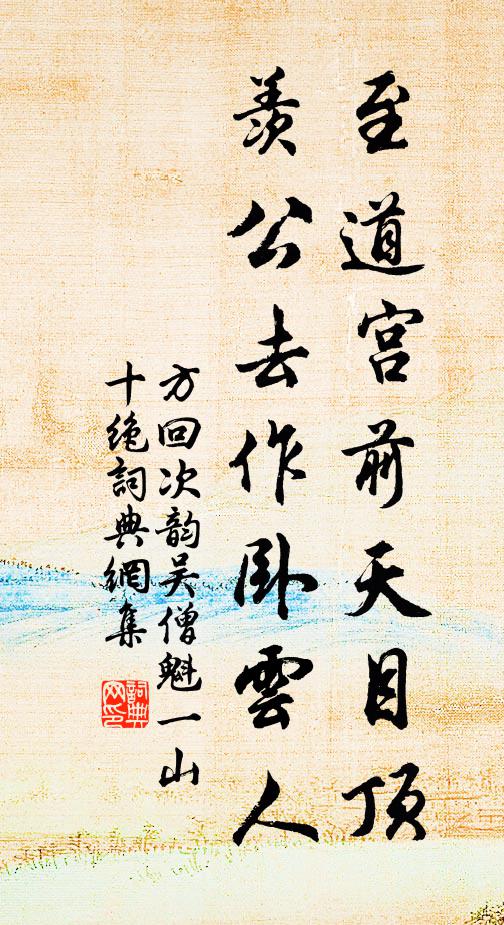 至道宫前天目顶
羨公去作卧雲人
方回次韵吴僧魁一山
十绝詞典網集
詞典
网印